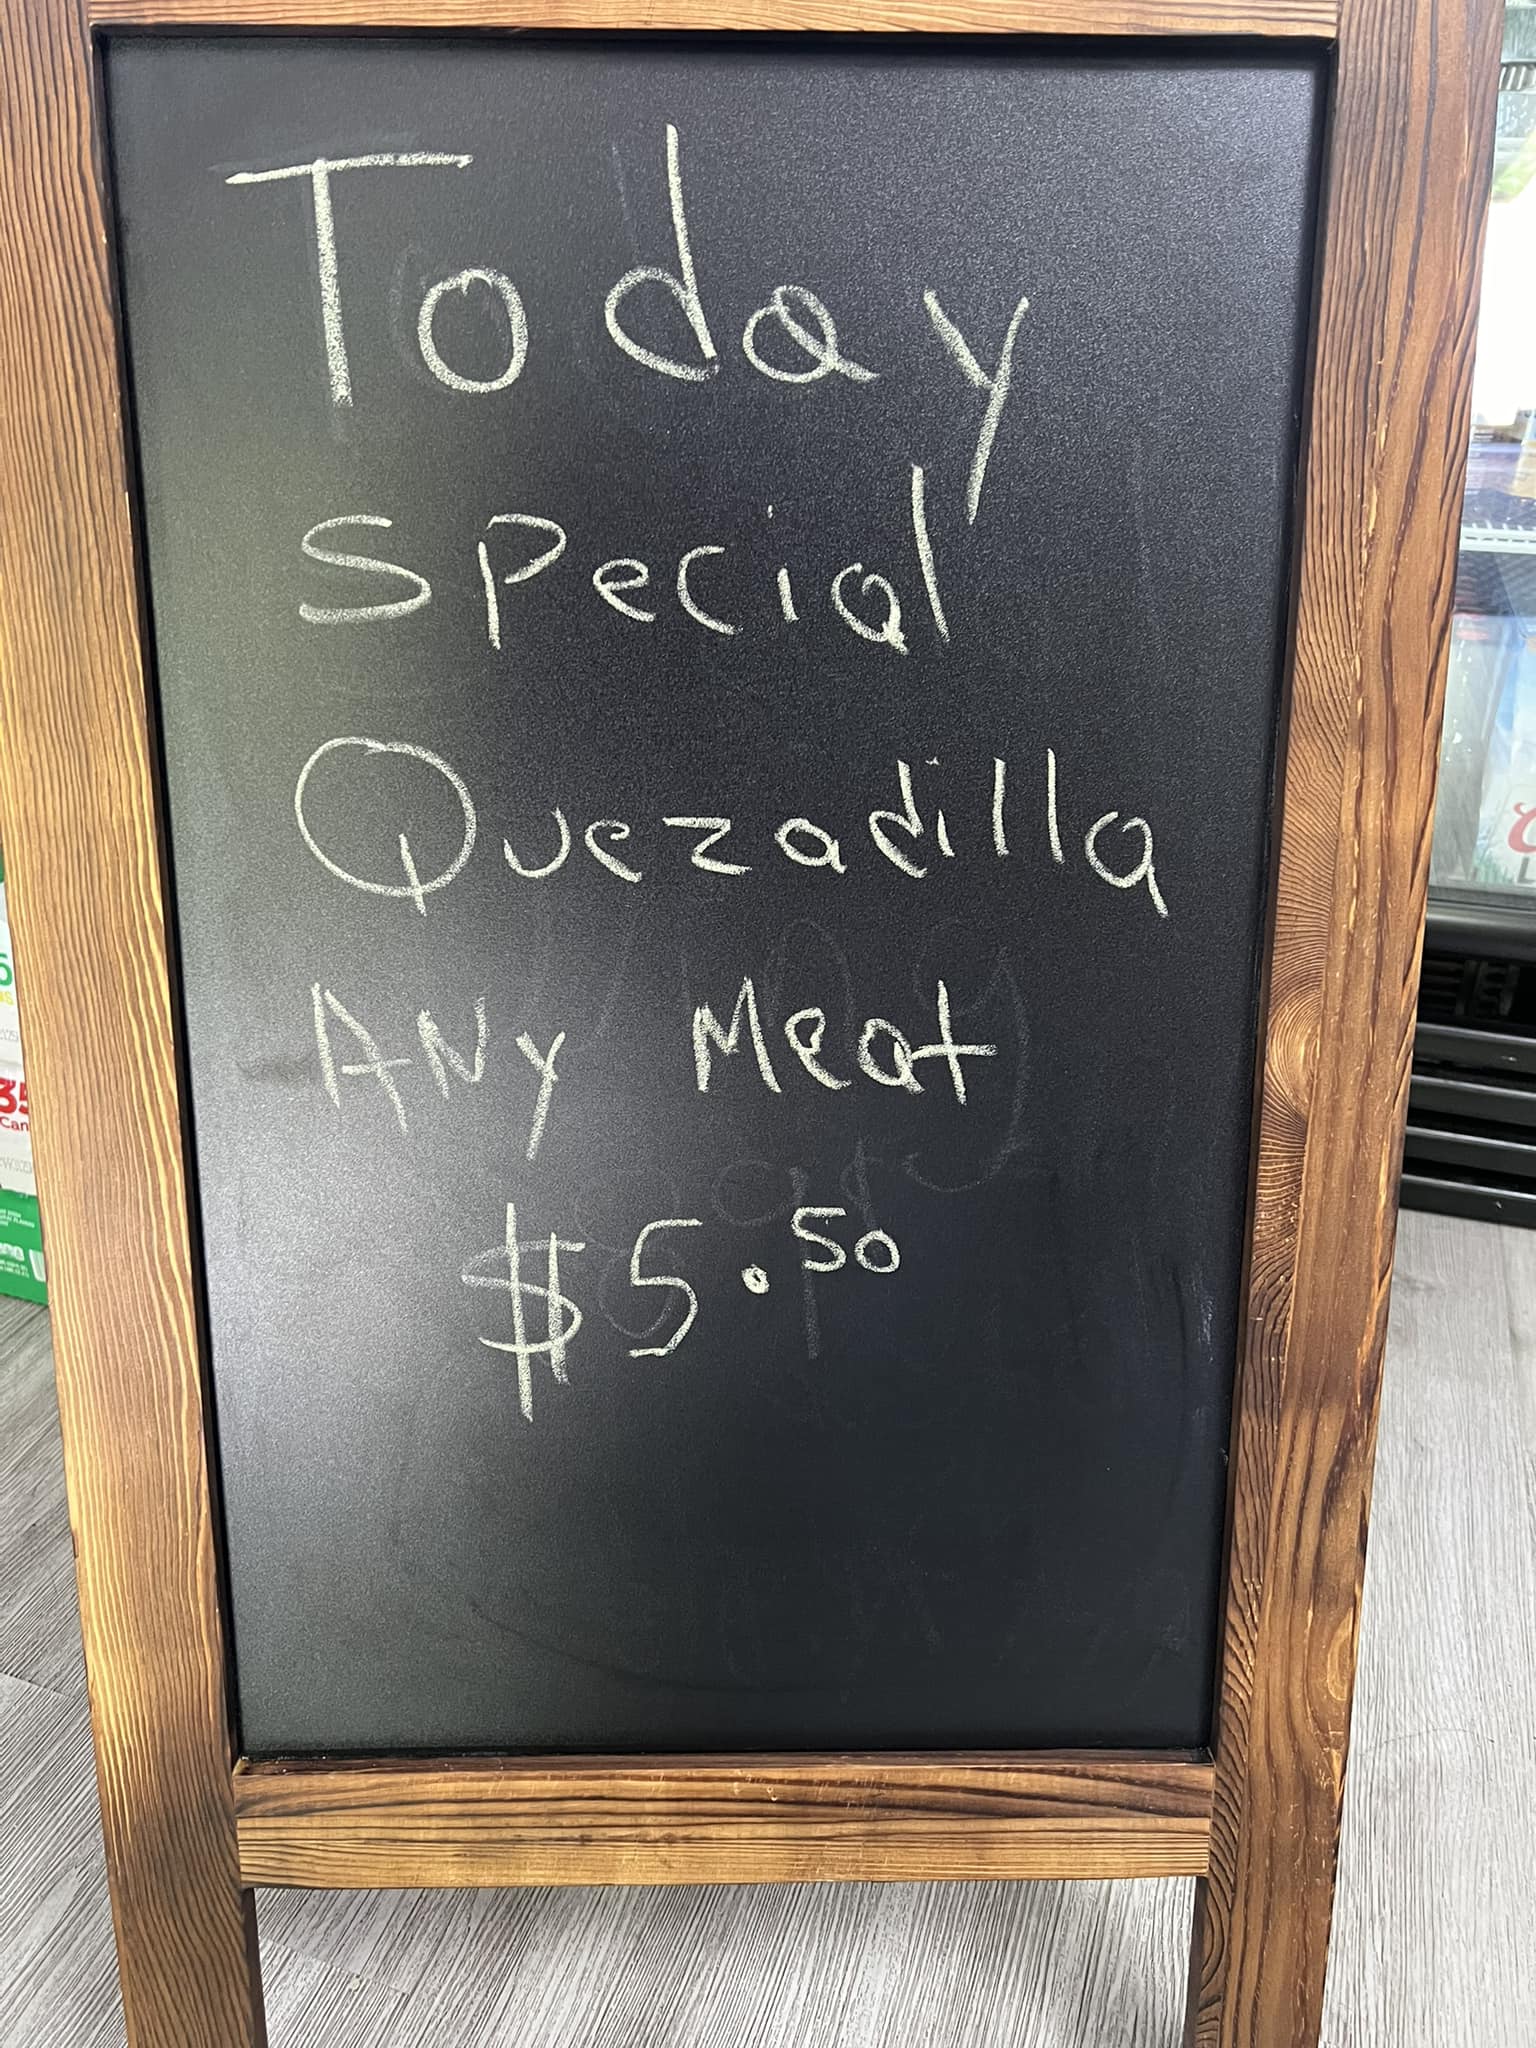 Today
Special
Quezadilla
ANy Meat
$5.50
35
Can